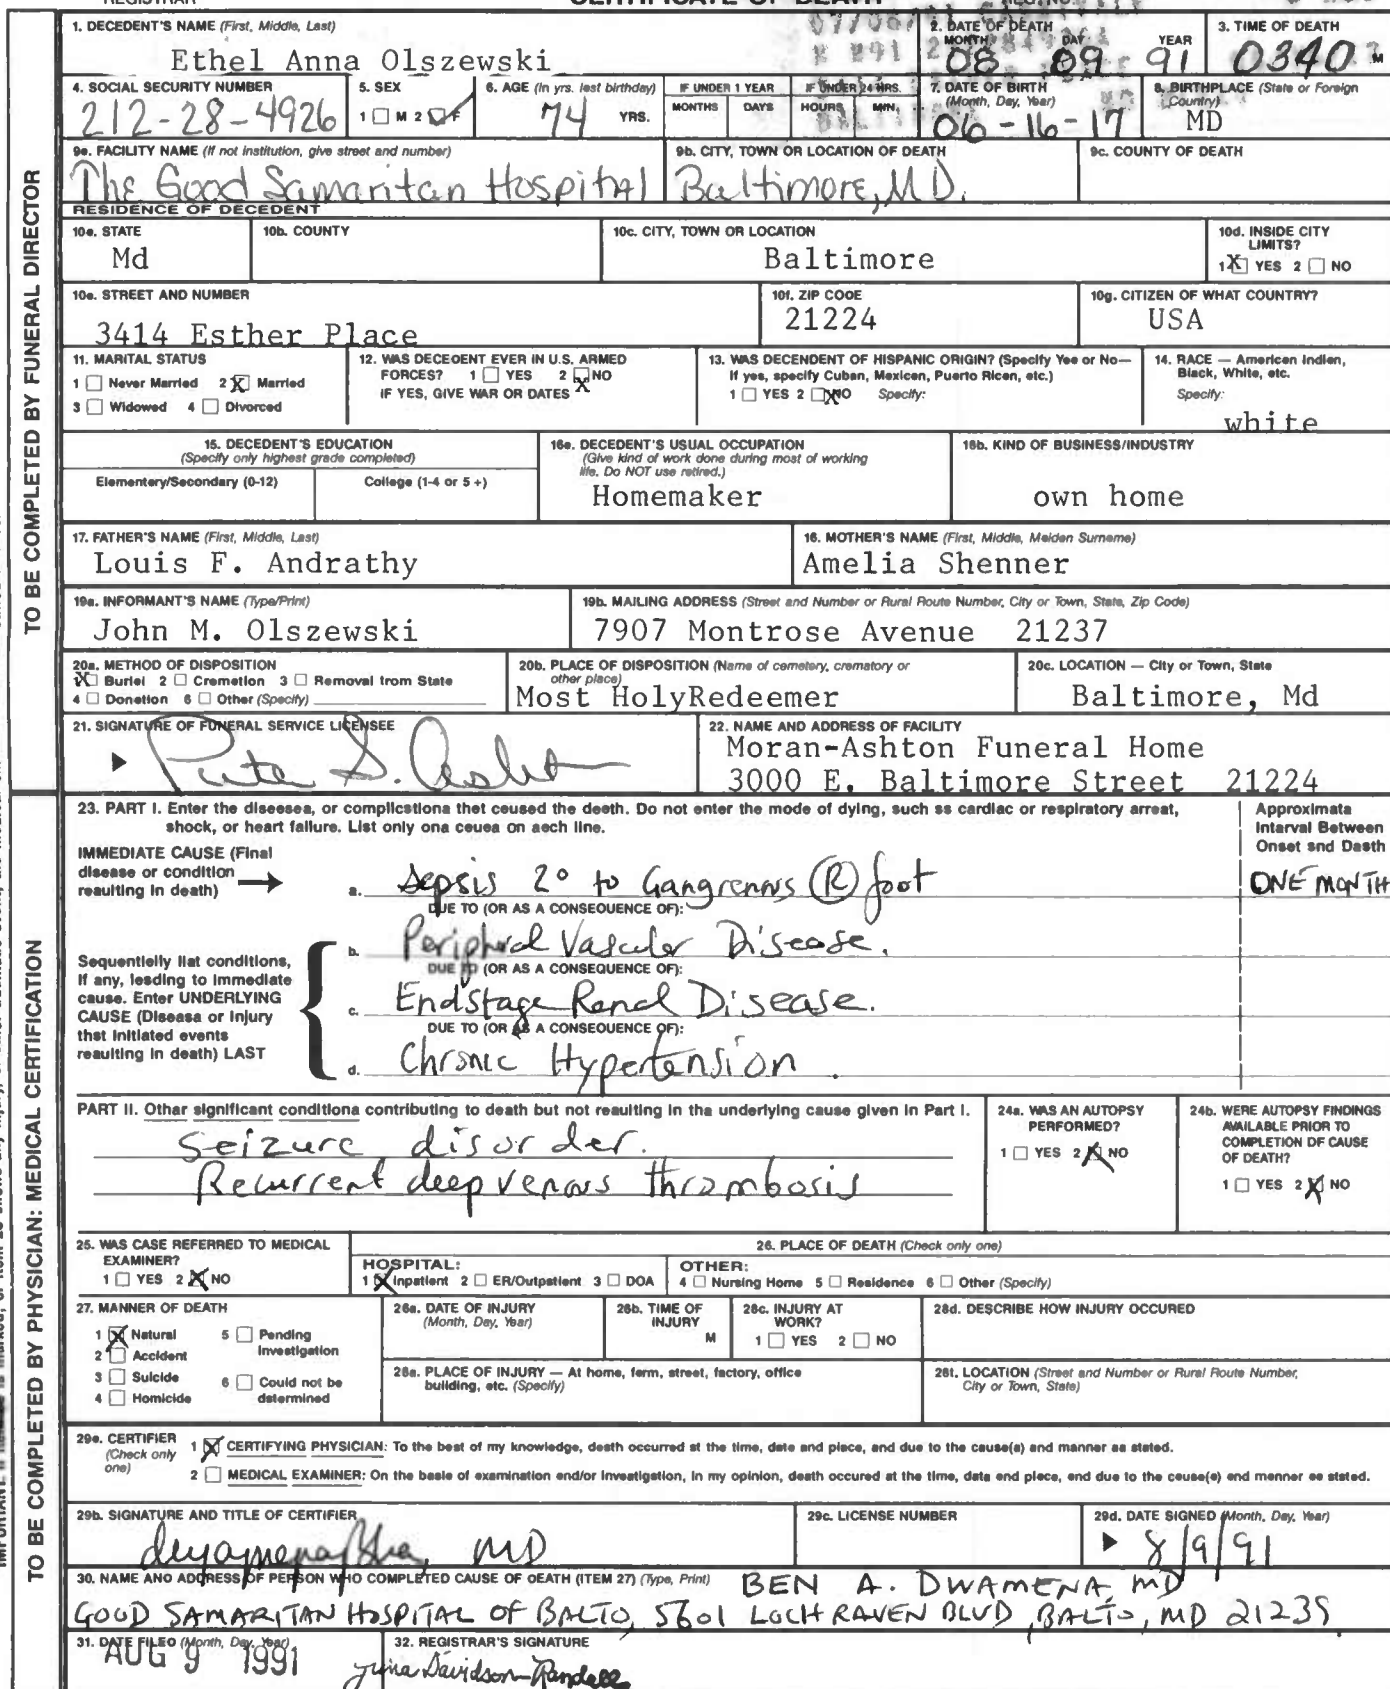 REGISTRAR
CERTIFICATE OF DEATH
1. DECEDENT'S NAME (First, Middle, Last)
Ethel Anna Olszewski
2. DATE OF DEATH
MONTH DAY YEAR
08 09 91
3. TIME OF DEATH
0340 M
4. SOCIAL SECURITY NUMBER
212-28-4926
5. SEX
1 M 2 F
6. AGE (In yrs. last birthday)
74 YRS.
IF UNDER 1 YEAR
MONTHS DAYS
IF UNDER 24 HRS.
HOURS MIN.
7. DATE OF BIRTH
(Month, Day, Year)
06-16-17
8. BIRTHPLACE (State or Foreign
Country)
MD
9a. FACILITY NAME (If not institution, give street and number)
The Good Samaritan Hospital
9b. CITY, TOWN OR LOCATION OF DEATH
Baltimore, MD.
9c. COUNTY OF DEATH
RESIDENCE OF DECEDENT
10a. STATE
Md
10b. COUNTY
10c. CITY, TOWN OR LOCATION
Baltimore
10d. INSIDE CITY
LIMITS?
1 X YES 2 NO
10e. STREET AND NUMBER
3414 Esther Place
10f. ZIP CODE
21224
10g. CITIZEN OF WHAT COUNTRY?
USA
11. MARITAL STATUS
1 Never Married 2 X Married
3 Widowed 4 Divorced
12. WAS DECEDENT EVER IN U.S. ARMED
FORCES? 1 YES 2 X NO
IF YES, GIVE WAR OR DATES
13. WAS DECENDENT OF HISPANIC ORIGIN? (Specify Yes or No—
If yes, specify Cuban, Mexican, Puerto Rican, etc.)
1 YES 2 X NO Specify:
14. RACE — American Indian,
Black, White, etc.
Specify:
white
15. DECEDENT'S EDUCATION
(Specify only highest grade completed)
Elementary/Secondary (0-12) College (1-4 or 5 +)
16a. DECEDENT'S USUAL OCCUPATION
(Give kind of work done during most of working
life. Do NOT use retired.)
Homemaker
16b. KIND OF BUSINESS/INDUSTRY
own home
17. FATHER'S NAME (First, Middle, Last)
Louis F. Andrathy
18. MOTHER'S NAME (First, Middle, Maiden Surname)
Amelia Shenner
19a. INFORMANT'S NAME (Type/Print)
John M. Olszewski
19b. MAILING ADDRESS (Street and Number or Rural Route Number, City or Town, State, Zip Code)
7907 Montrose Avenue 21237
20a. METHOD OF DISPOSITION
X Burial 2 Cremation 3 Removal from State
4 Donation 6 Other (Specify)
20b. PLACE OF DISPOSITION (Name of cemetery, crematory or
other place)
Most HolyRedeemer
20c. LOCATION — City or Town, State
Baltimore, Md
21. SIGNATURE OF FUNERAL SERVICE LICENSEE
22. NAME AND ADDRESS OF FACILITY
Moran-Ashton Funeral Home
3000 E. Baltimore Street 21224
TO BE COMPLETED BY FUNERAL DIRECTOR
23. PART I. Enter the diseases, or complications that caused the death. Do not enter the mode of dying, such as cardiac or respiratory arrest,
shock, or heart failure. List only one cause on each line.
Approximate
Interval Between
Onset and Death
IMMEDIATE CAUSE (Final
disease or condition
resulting in death)
a. Sepsis 2° to Gangrenous (R) foot
ONE MONTH
DUE TO (OR AS A CONSEQUENCE OF):
b. Peripheral Vascular Disease.
DUE TO (OR AS A CONSEQUENCE OF):
Sequentially list conditions,
if any, leading to immediate
cause. Enter UNDERLYING
CAUSE (Disease or injury
that initiated events
resulting in death) LAST
c. Endstage Renal Disease.
DUE TO (OR AS A CONSEQUENCE OF):
d. Chronic Hypertension.
PART II. Other significant conditions contributing to death but not resulting in the underlying cause given in Part I.
Seizure disorder.
Recurrent deep venous thrombosis
24a. WAS AN AUTOPSY
PERFORMED?
1 YES 2 X NO
24b. WERE AUTOPSY FINDINGS
AVAILABLE PRIOR TO
COMPLETION OF CAUSE
OF DEATH?
1 YES 2 X NO
25. WAS CASE REFERRED TO MEDICAL
EXAMINER?
1 YES 2 X NO
26. PLACE OF DEATH (Check only one)
HOSPITAL:
1 X Inpatient 2 ER/Outpatient 3 DOA
OTHER:
4 Nursing Home 5 Residence 6 Other (Specify)
27. MANNER OF DEATH
1 X Natural 5 Pending
Investigation
2 Accident
3 Suicide 6 Could not be
determined
4 Homicide
28a. DATE OF INJURY
(Month, Day, Year)
28b. TIME OF
INJURY
M
28c. INJURY AT
WORK?
1 YES 2 NO
28d. DESCRIBE HOW INJURY OCCURED
28e. PLACE OF INJURY — At home, farm, street, factory, office
building, etc. (Specify)
28f. LOCATION (Street and Number or Rural Route Number,
City or Town, State)
29a. CERTIFIER
(Check only
one)
1 X CERTIFYING PHYSICIAN: To the best of my knowledge, death occurred at the time, date and place, and due to the cause(s) and manner as stated.
2 MEDICAL EXAMINER: On the basis of examination and/or investigation, in my opinion, death occured at the time, date and place, and due to the cause(s) and manner as stated.
29b. SIGNATURE AND TITLE OF CERTIFIER
MD
29c. LICENSE NUMBER
29d. DATE SIGNED (Month, Day, Year)
8/9/91
30. NAME AND ADDRESS OF PERSON WHO COMPLETED CAUSE OF DEATH (ITEM 27) (Type, Print)
BEN A. DWAMENA, MD
GOOD SAMARITAN HOSPITAL OF BALTO, 5601 LOCH RAVEN BLVD, BALTO, MD 21239
31. DATE FILED (Month, Day, Year)
AUG 9 1991
32. REGISTRAR'S SIGNATURE
Davidson-Randall
TO BE COMPLETED BY PHYSICIAN: MEDICAL CERTIFICATION